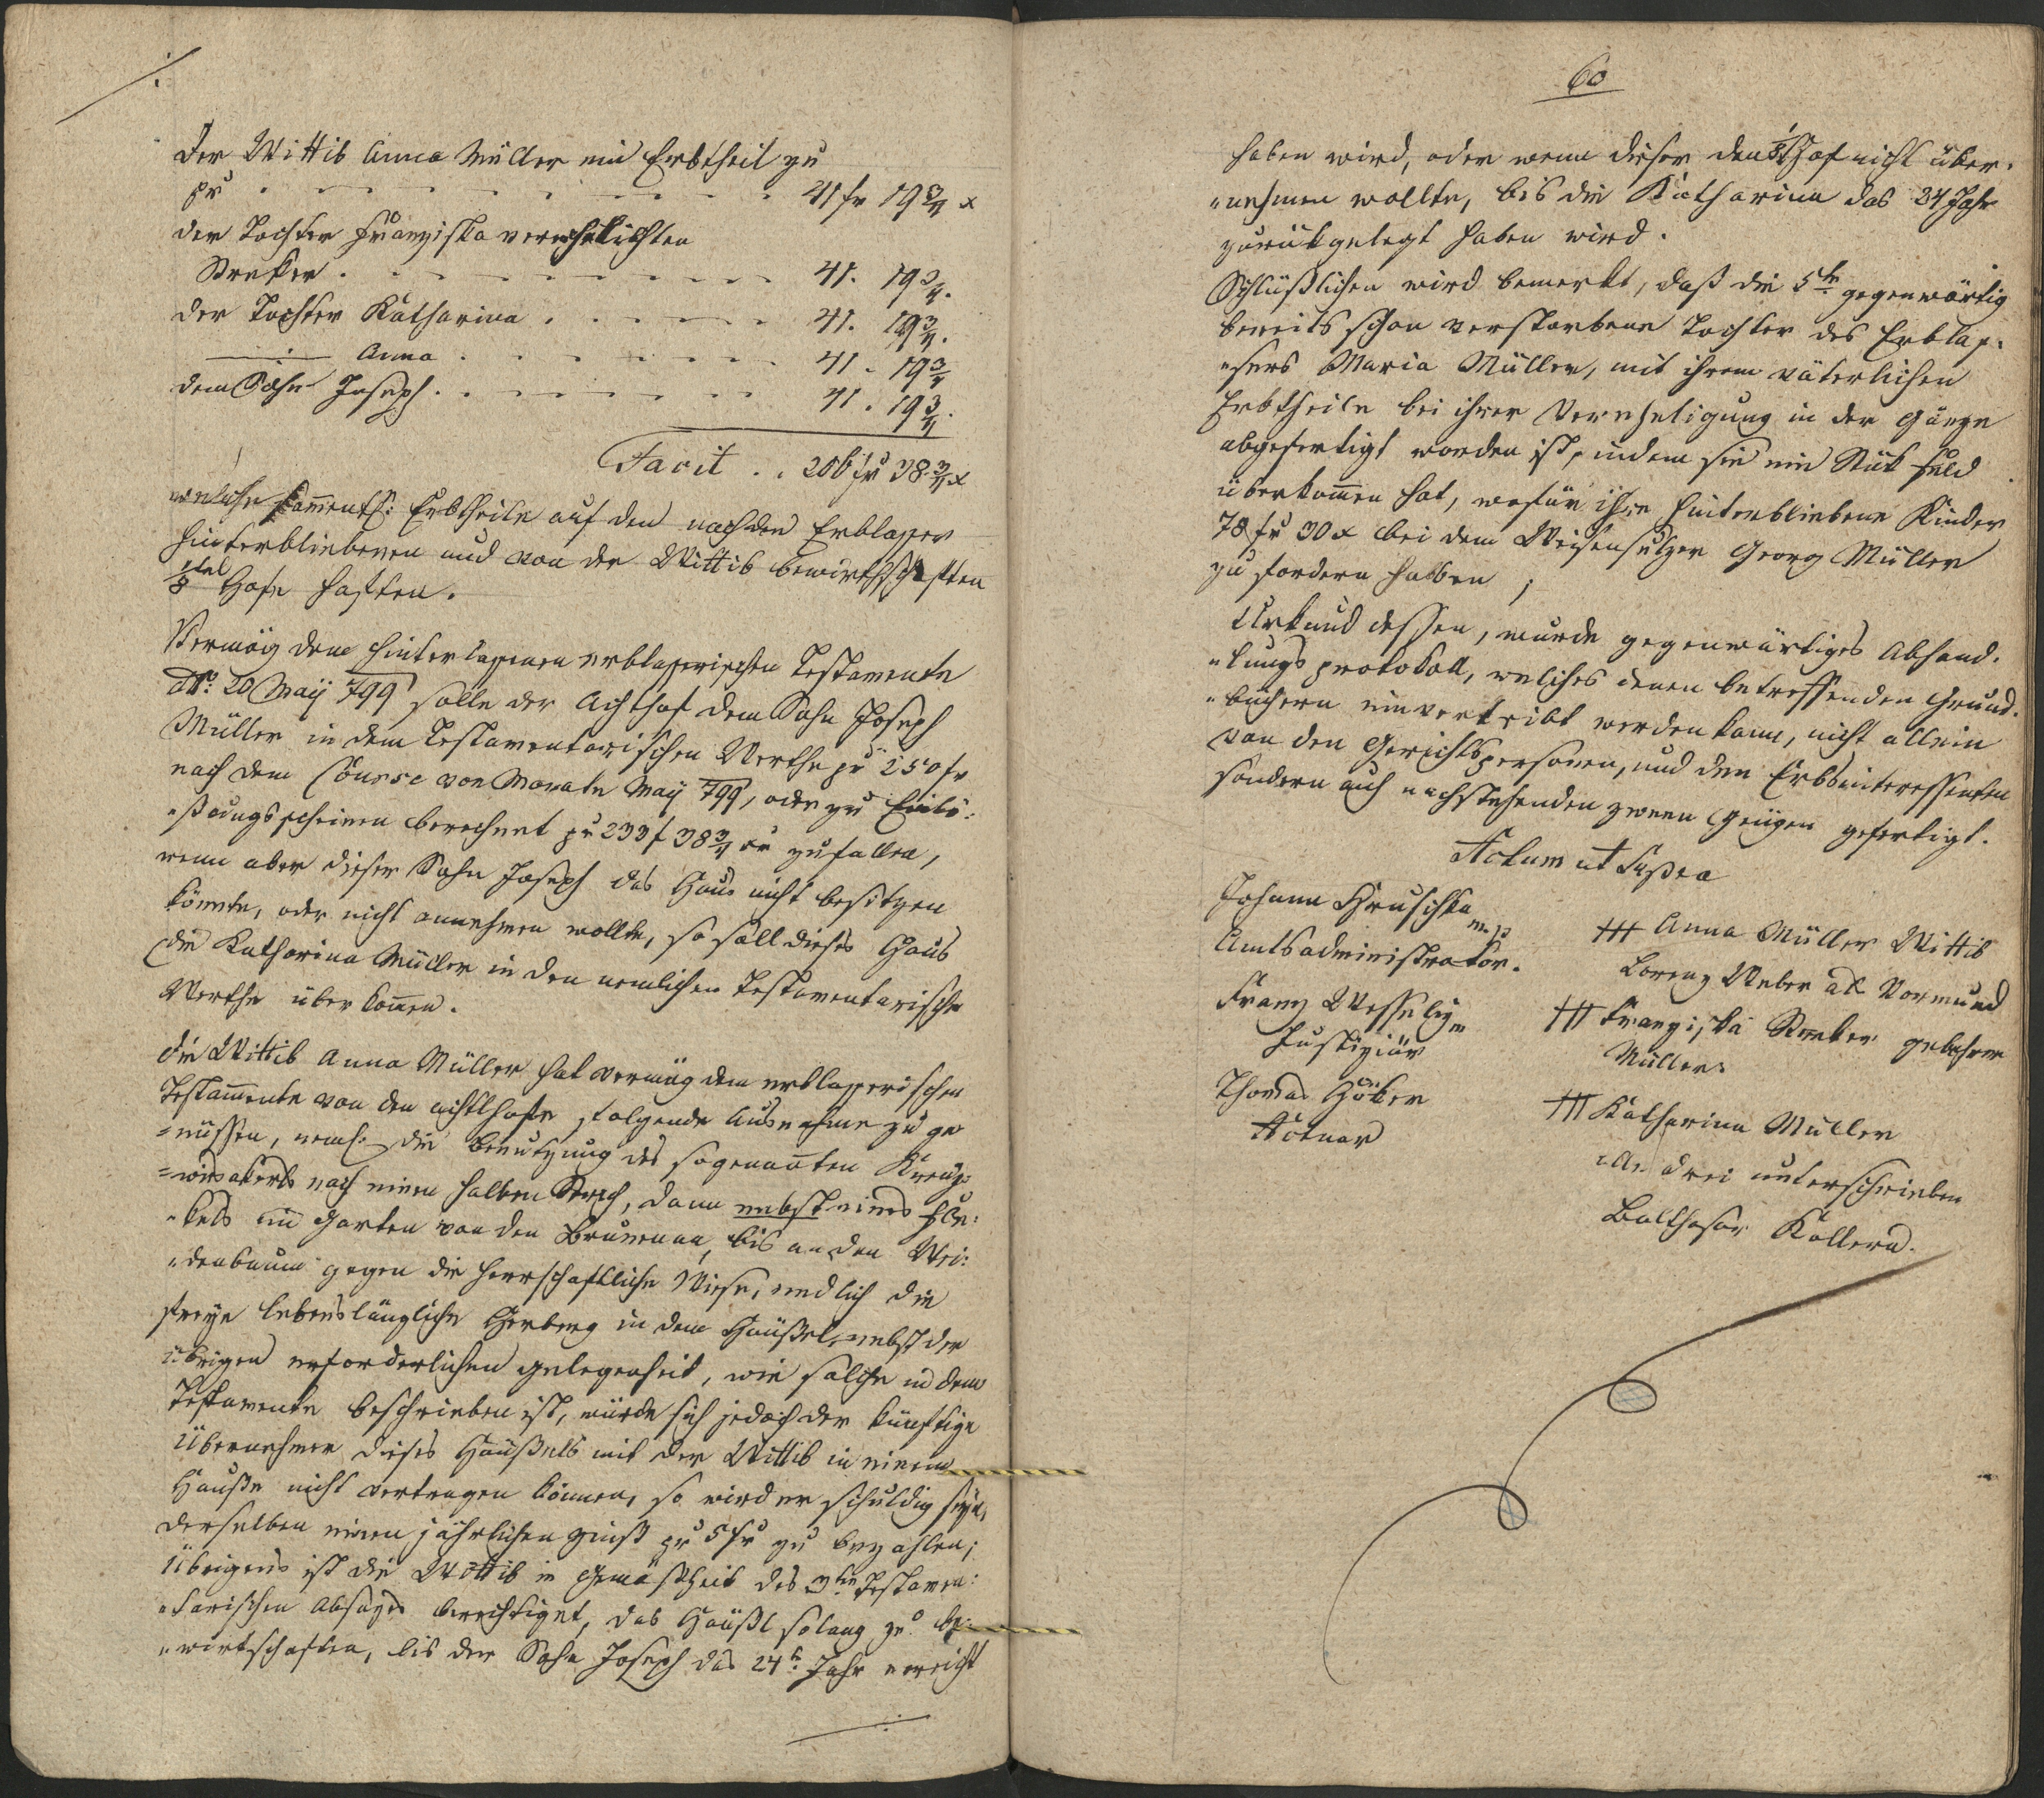 Der Wittib Anna Müller ein Erbtheil zu
pr . . . . . . . . 41 fr 19 3/4 x
der Tochter Franziska verehelichten
Streker . . . . . . . . 41. 19 3/4.
der Tochter Katharina . . . . . 41. 19 3/4.
—:— Anna . . . . . . 41. 19 3/4
dem Sohn Joseph . . . . . . 41. 19 3/4.
Facit . . 206 fr 38 3/4 x
welche sammentl: Erbtheile auf den nach den Erblasser
hinterbliebenen und von der Wittib bewirthschaften
1/8tel Hofe haften.
Vermög dem hinterlassenen erblasserischen Testamente
ddto: 20 Maÿ 799 solle der Achthof dem Sohn Joseph
Müller in dem Testamentarischen Werthe pr 250 fr
nach dem Course von Monate Maÿ 799, oder zu Einlö:
"ßungsscheinen berechnet pr 233 f 38 3/4 xr zufallen,
wenn aber dieser Sohn Joseph das Haus nicht besitzen
könnte, oder nicht annehmen wollte, so soll dieses Haus
die Katharina Müller in den nemlichen Testamentarische
Werthe überkomen.
Die Wittib Anna Müller hat vermög dem erblasserischen
Testamente von den achtlhofe folgende Ausnahme zu ge
=nüssen, neml: die Benutzung des sogenannten Kreuz
=wirsakerls nach einen halben Strich, dann nebst eines Fle:
"kels im Garten von den Brunenen, bis an den Wei:
"denbaum gegen die herrschaftliche Wiese, endlich die
freÿe lebenslängliche Herberg in dem Häußel, nebst der
übrigen erforderlichen Gelegenheit, wie solche in dem
Testamente beschrieben ist, würde sich jedoch der künftige
Übernehmer dieses Häußels mit der Wittib in einem
Hauße nicht vertragen können, so wird er schuldig seÿn,
derselben einen jährlichen Zinß pr 5 fr zu bezahlen;
Übrigens ist die Wittib in Gemäßheit des 3ten Testamen:
"tarischen Absazes berechtiget, das Häußl solang zu be:
"wirtschaften, bis der Sohn Joseph das 24te Jahr erreicht
60
haben wird, oder wenn dieser den 1/8 Hof nicht über:
"nehmen wollte, bis die Katharina das 24 Jahr
zurükgelegt haben wird.
Schlüßlichen wird bemerkt, daß die 5te gegenwärtig
bereits schon verstorbene Tochter des Erblas:
"sers Maria Müller, mit ihrem väterlichen
Erbtheile bei ihrer Verehelichung in der Gänze
abgefertigt worden ist, indem sie ein Stük Feld
überkommen hat, wofür ihre hinterbliebene Kinder
78 fr 30 x bei dem Georg Müller
zu fordern haben;
Urkund dessen, wurde gegenwärtiges Abhand:
"lungsprotokoll, welches denen betreffenden Grund:
"büchern einverleibt werden kann, nicht allein
von den Gerichtspersonen, und den Erbsinteressenten
sondern auch nachstehenden zween Zeugen gefertigt.
Actum ut Supra
Johann Hruschka
mp
Amtsadministrator.
Franz Wesselÿ m
Justiziär
Thomas
Actuar
+++ Anna Müller Wittib
Lorenz Weber als Vormund
+++ Franziska Streker gebohrne
Müller:
+++ Katharina Müller
alle drei unterschrieben
Balthasar Kollern.